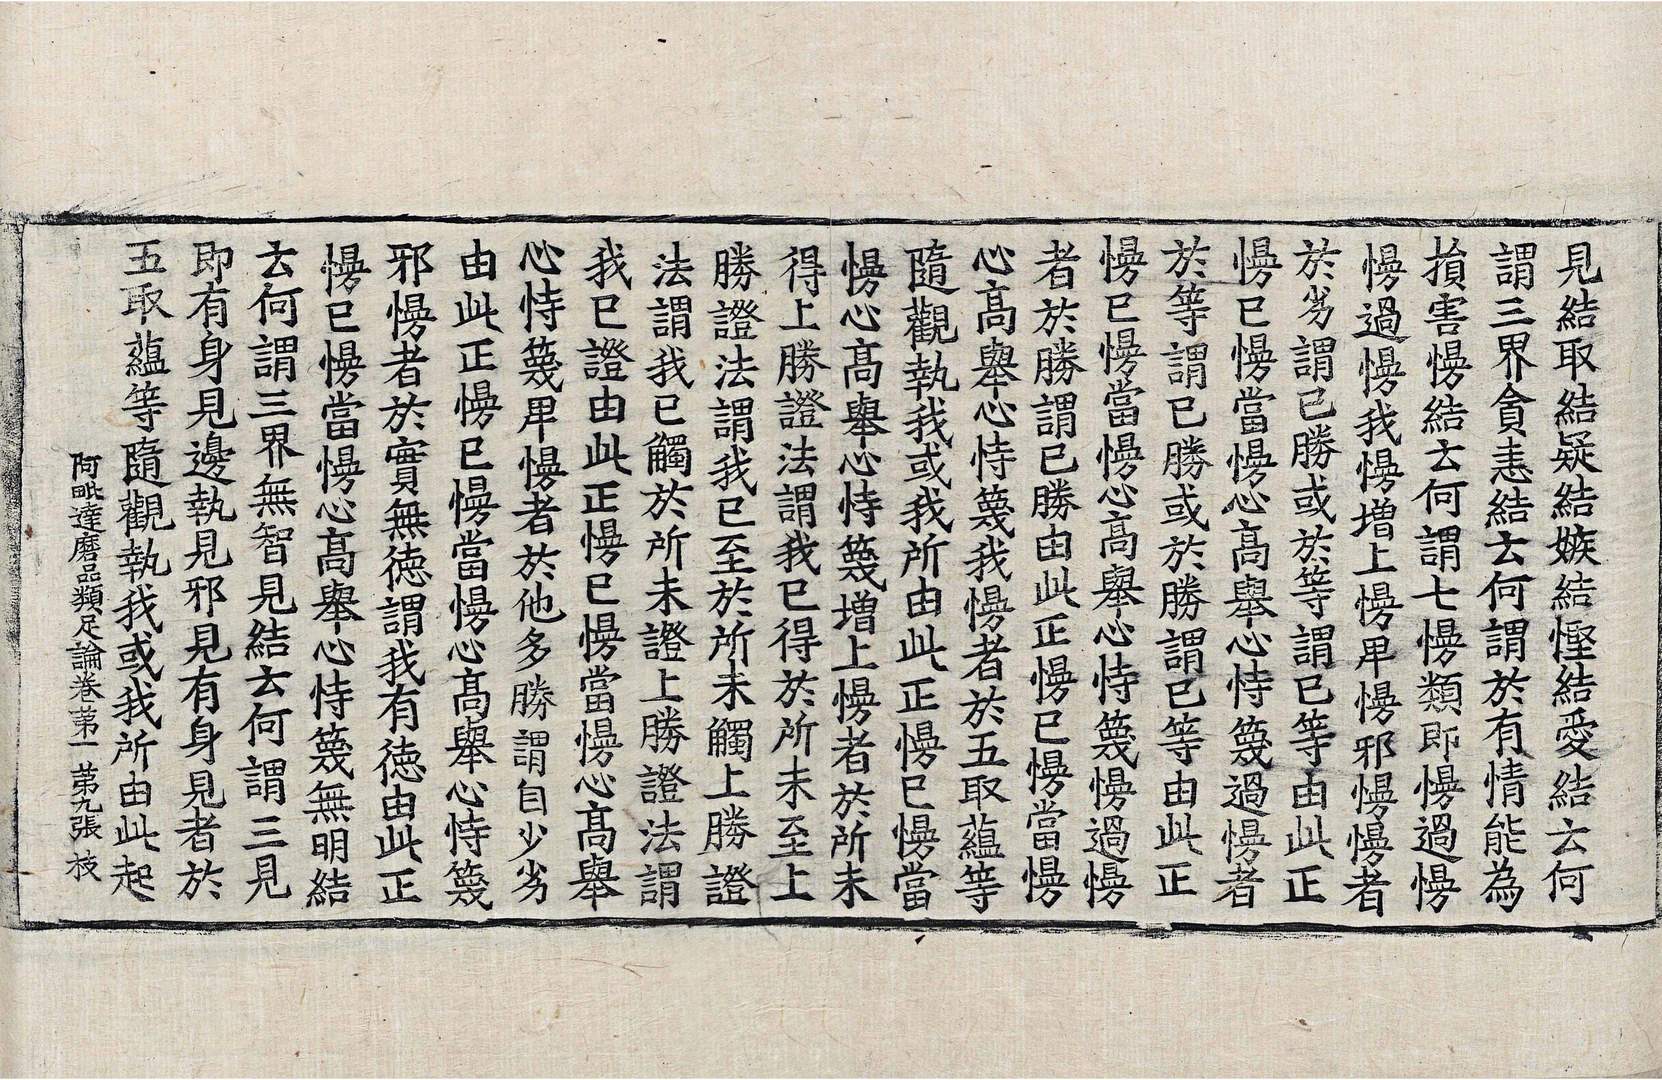 見結取結疑結嫉結慳結愛結云何
謂三界貪恚結云何謂於有情能為
損害慢結云何謂七慢類即慢過慢
慢過慢我慢增上慢卑慢邪慢慢者
於劣謂已勝或於等謂已等由此正
慢已慢當慢心高舉心恃篾過慢者
於等謂已勝或於勝謂已等由此正
慢已慢當慢心高舉心恃篾慢過慢
者於勝謂已勝由此正慢已慢當慢
心高舉心恃篾我慢者於五取蘊等
隨觀執我或我所由此正慢已慢當
慢心高舉心恃篾增上慢者於所未
得上勝證法謂我已得於所未至上
勝證法謂我已至於所未觸上勝證
法謂我已觸於所未證上勝證法謂
我已證由此正慢已慢當慢心高舉
心恃篾卑慢者於他多勝謂自少劣
由此正慢已慢當慢心高舉心恃篾
邪慢者於實無德謂我有德由此正
慢已慢當慢心高舉心恃篾無明結
云何謂三界無智見結云何謂三見
即有身見邊執見邪見有身見者於
五取蘊等隨觀執我或我所由此起
阿毗達磨品類足論卷第一 第九張 枝